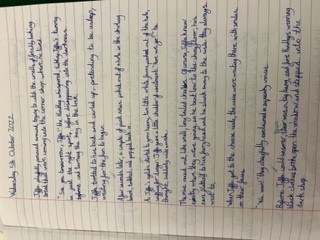 Wednesday 5th October 2022
Jiffa playfully pounced around, trying to add the smells of freshly baking
bread that were coming into the corner shop where he lived.
"See you tomorrow, Jiffa" Mr Huxley whispered, Jiffa's tummy
in just the right spot, before disappearing into the darkness
and turning the key in the lock.
Jiffa trotted to his bed and curled up, pretending to be asleep,
waiting for the fun to begin.
A few seconds later, a couple of pink noses poked out of a hole in the skirting
board, twitched, and popped back in.
As Jiffa's eyelids started to grow heavy, two little white faces peeked out of the hole,
Jiffa gave a little shudder of excitement. "here we go!" he
thought,
The mice raced out, like small, long tailed cheetahs. Of course, Jiffa knew
exactly where they were going so he bent low to the shiny floor, his
ears flattened to his furry head and he slunk away to the aisle they always
went to.
When Jiffa got to the cheese aisle, the mice were waiting there with smiles
on their faces.
"We won!" they cheerfully exclaimed in squeaky voices.
Before Jiffa could answer, there was a big bang, and two wearing
black clothes broke open the window and stepped into the
dark shop.